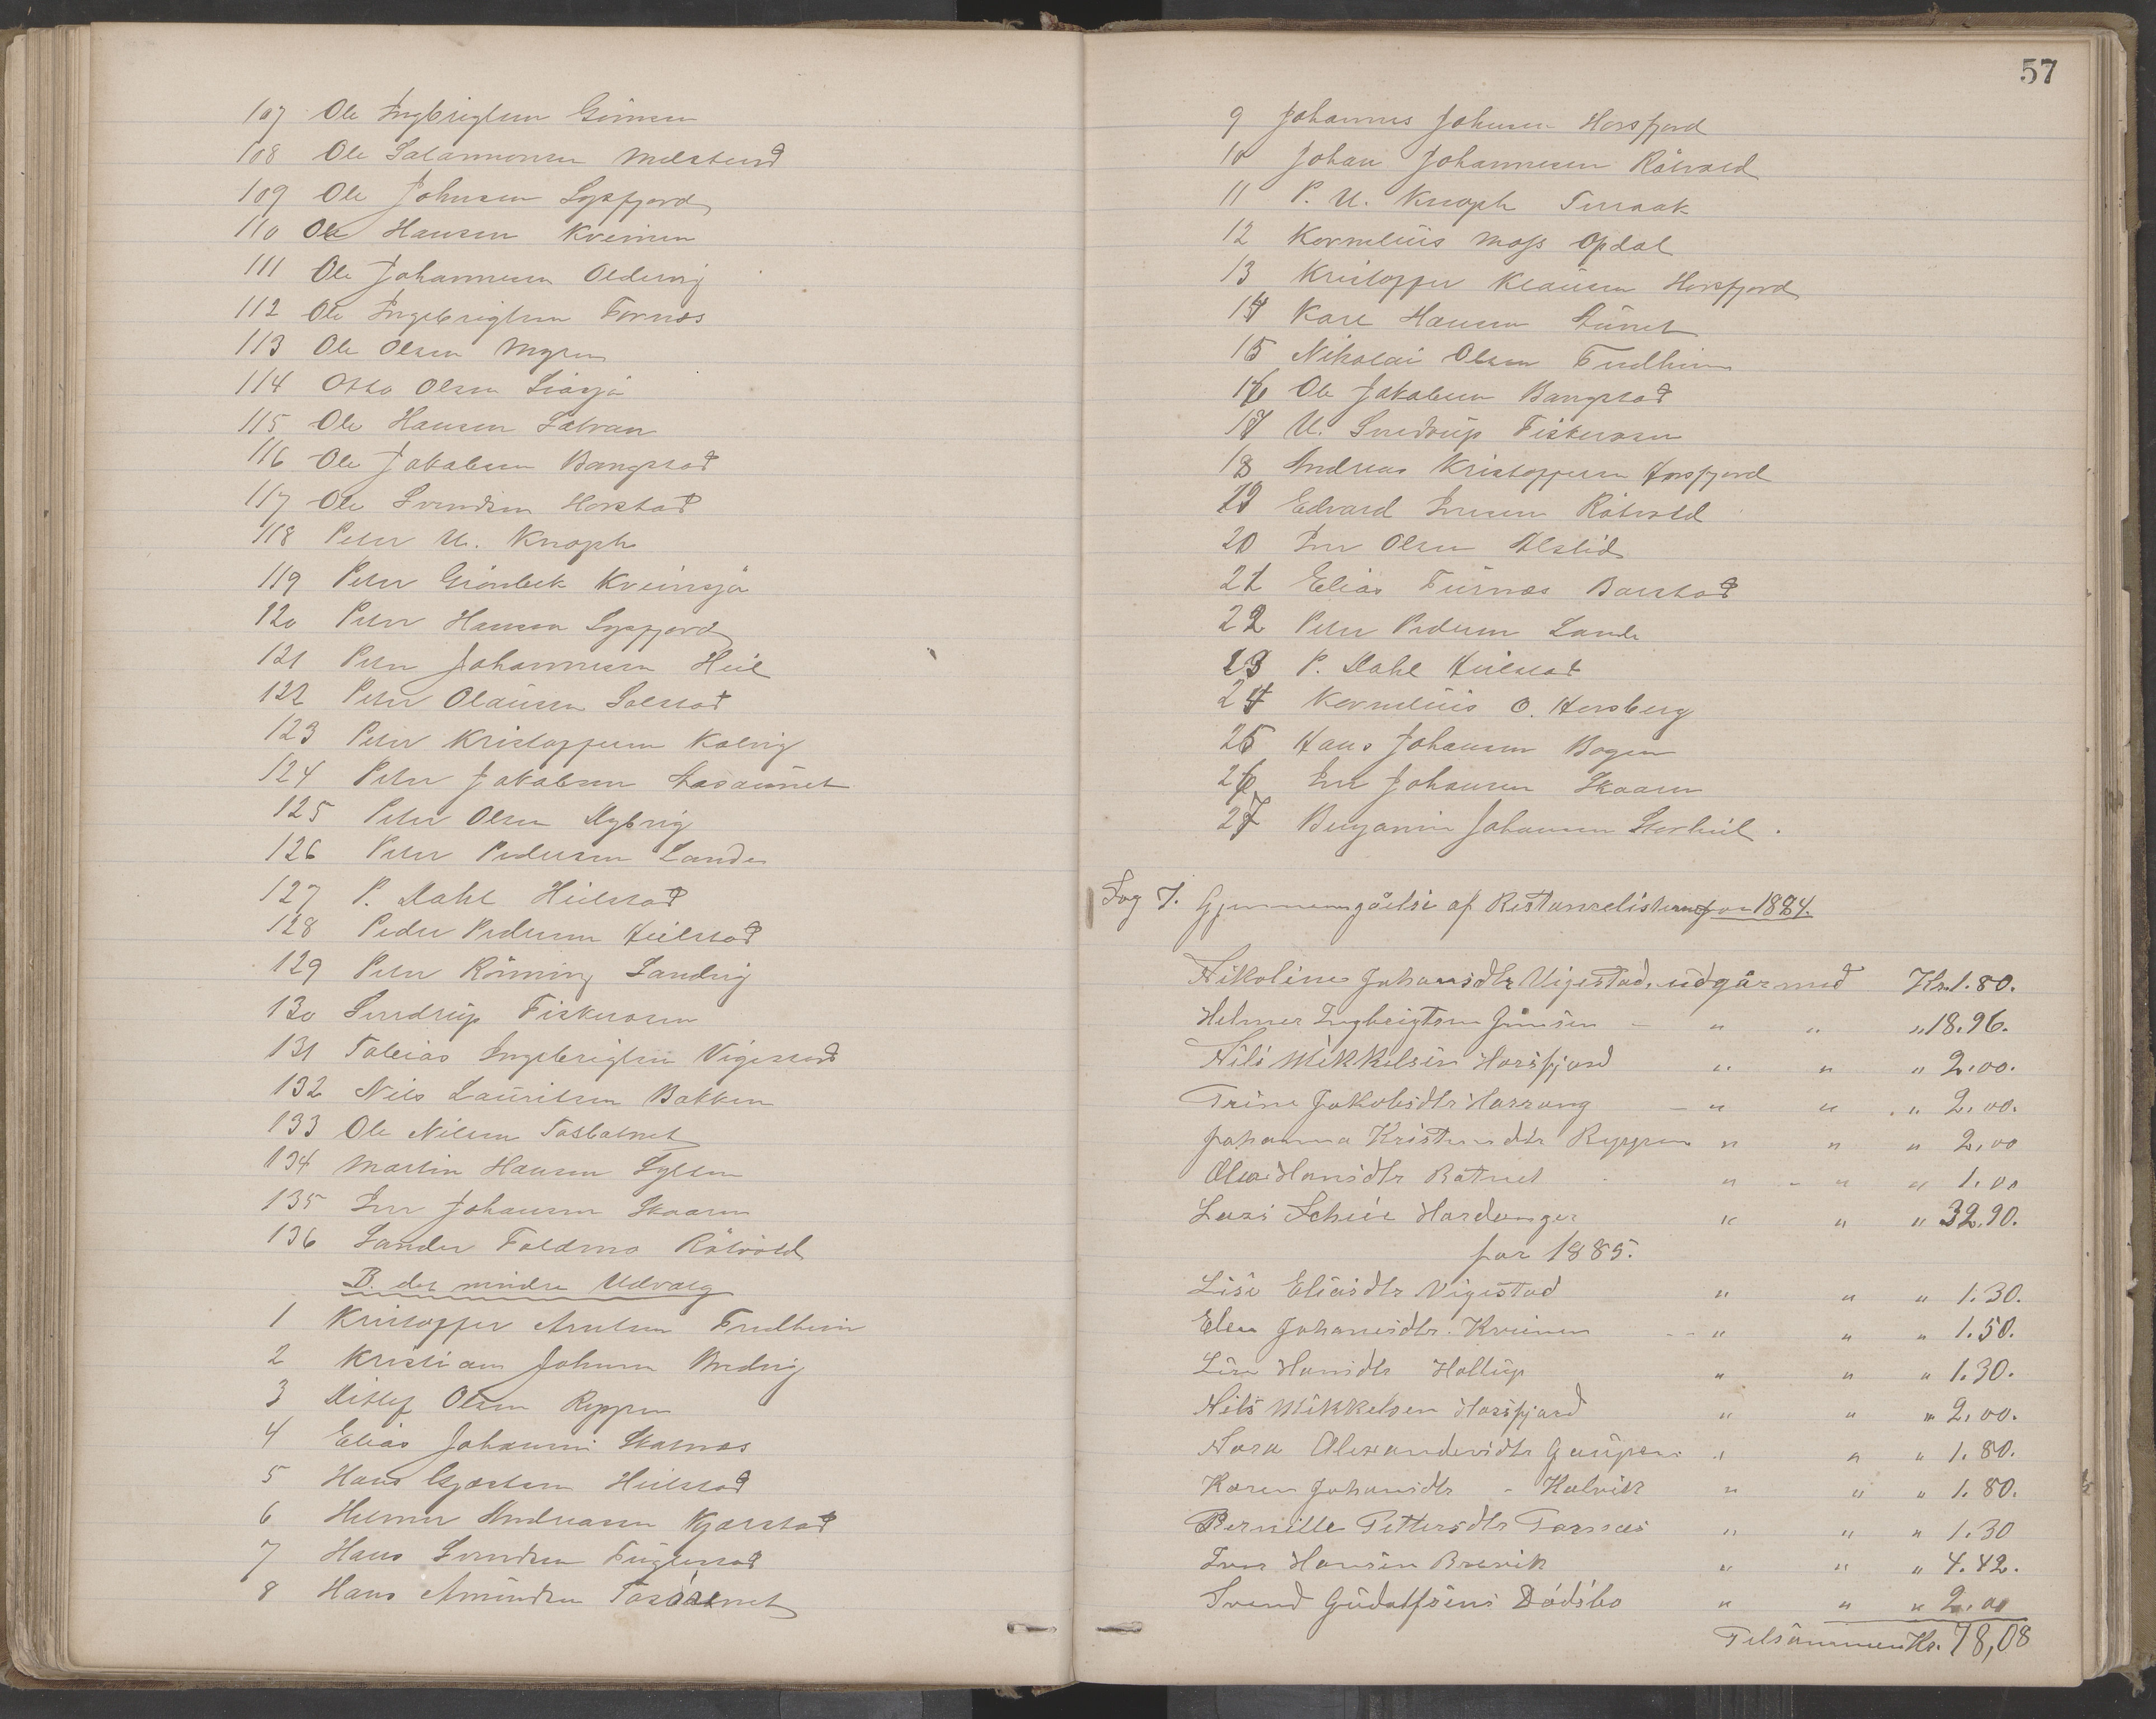 107 Ole Ingebrigtsen Grönmen
108 Ole Salamonsen Melstend
109 Ole Johnsen Lysfjord
110 Ole Hansen Kveinen
111 Ole Johannesen Oldervig
112 Ole Ingebrigtsen Fornæs
113 Ole Olsen Myren
114 Otto Olsen
115 Ole Hansen Salvan
116 Ole Jakobsen Bangstad
117 Ole Svendsen Horstad
118 Peter U. Knoph
119 Peter Grönbek Kveinsjö
120 Peter Hansen Lysfjord
121 Peter Johannesen Heil
122 Peter Olausen Solstad
123 Peter Kristoffersen Kalvig
124 Peter Jakobsen Aasaunet
125 Peter Olsen Dybvig
126 Peter Pedersen Lande
127 P. Dahl Heilstad
128 Peder Pedersen Heilstad
129 Peter Rönning Sandvig
130 Sverdrup Fiskerosen
131 Tobias Ingebrigtsen Vigestad
132 Nils Lauritsen Bakken
133 Ole Nilsen Tosbotnet
134 Martin Hansen Sylten
135 Iver Johansen Skaaren
136 Sander Foldmo Råvold
B. det mindre Udvalg
1 Kristoffer Arntsen Fredheim
2 Kristian Johnsen Bredvig
3 Ditlef Olsen Reppen
4 Elias Johannes Skatnæs
5 Hans Heilstad
6 Helmer Andreasen Kjærstad
7 Hans Svendsen Fuglestad
8 Hans Amundsen Tosbotnet
57
9 Johannes Johnsen Horsfjord
10 Johan Johannesen Råvold
11 P. U. Knoph Terraak
12 Kornelius Moss Opdal
13 Kristoffer Klausen Horsfjord
14 Karl Hansen Aunet
15 Nikolai Olsen Fredheim
16 Ole Jakobsen Bangstad
17 U. Sverdrup Fiskerosen
18 Andreas Kristoffersen Horsfjord
19 Edvard Iversen Råvold
20 Iver Olsen Alslid
21 Elias Furnæs Barstad
22 Peter Pedersen Lande
23 P. Dahl Heilstad
24 Kornelius O. Horsberg
25 Hans Johansen Bogen
26 Iver Johansen Skaaren
27 Benjamin Johansen Storheil.
Sag 7. Gjennemgåelse af Restanselisterne for 1884.
Nikoline Johansdtr Vigestad, udgår med Kr. 1.80.
Helmer Ingbrigtsen Grönsen - " " " 18.96.
Nils Mikkelsen Horsfjord " " " 2.00.
Trine Jakobsdtr Harrang - " " " 2.00.
Johanna Kristensdtr Reppen " " " 2,00
Olea Hansdtr Botnet " - " " 1.00
Lars Schei Hardanger " " " 32.90.
for 1885.
Lise Eliasdtr Vigestad " " " 1.30.
Elen Johansdtr. Kveinen - - " " " 1.50.
Line Hansdtr Hallup " " " 1.30.
Nils Mikkelsen Horsfjord " " " 2,00.
Nora Alexandersdtr Gaupen " " " 1.80.
Karen Johansdtr - Kalvik " " " 1.80.
Bernille Pettersdtr Fornæs " " " 1.30
Iver Hansen Brevik " " " 4.42.
Svend Gudalfsens Dödsbo " " " 2.00
Tilsammen Kr. 78,08